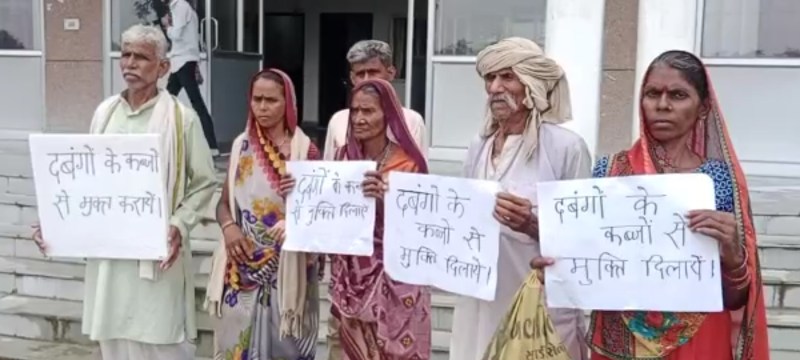 दबंगों के कब्जो
से मुक्त कराये।
दबंगों के कब्
से मुक्ति दिलाए
दबंगो के
कब्जो से
मुक्ति दिलाये।
दबंगो के
कब्जों से
मुक्ति दिलाये।